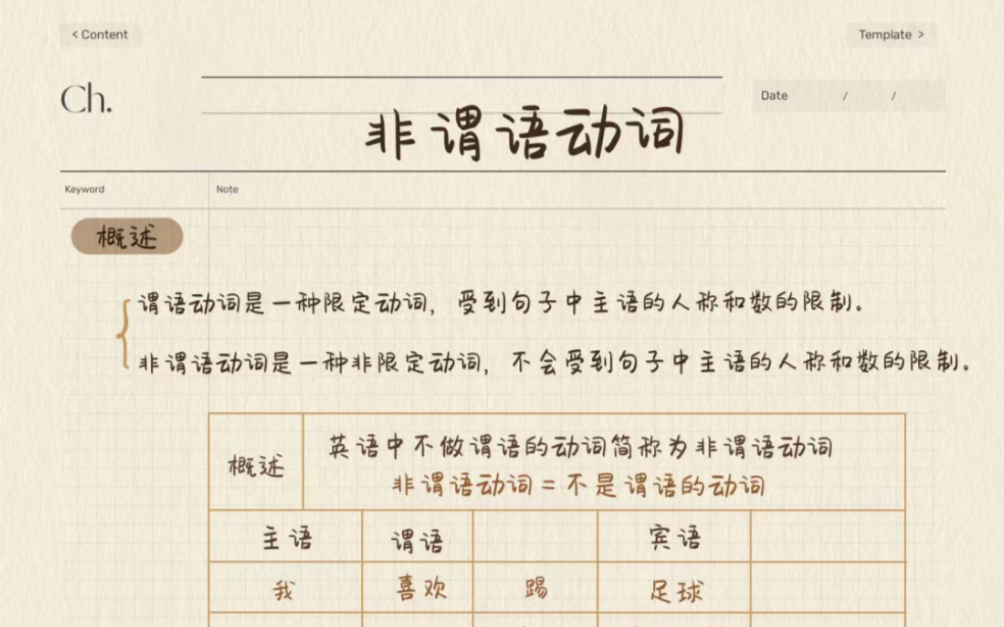 < Content
Template >
Ch.
Date / /
非谓语动词
Keyword
Note
概述
谓语动词是一种限定动词，受到句子中主语的人称和数的限制。
非谓语动词是一种非限定动词，不会受到句子中主语的人称和数的限制。
概述
英语中不做谓语的动词简称为非谓语动词
非谓语动词=不是谓语的动词
主语 谓语 宾语
我 喜欢 踢 足球